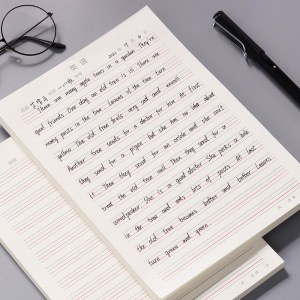 英语
2021年9月6日
There are many apple trees in a garden. They're
good friends. One day an old tree is ill. There are
many pests in the tree. Leaves of the tree turn
yellow. The old tree feels very sad and unwell.
Another tree sends for a doctor for him. At first,
they send for a pigeon, but she has no idea about
it. Then they send for an oriole, and she can't
treat the old tree well. Then they send for a
woodpecker. She is a good doctor. She pecks a hole
in the tree and eats lots of pests. At last
the old tree becomes better and better. Leaves
turn green and green.